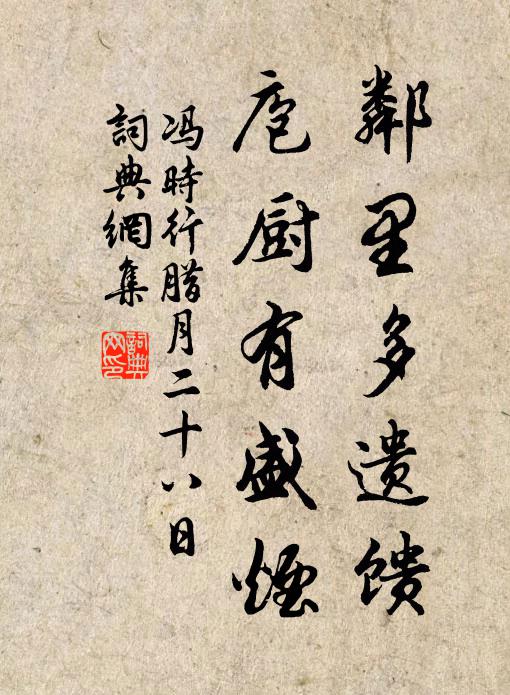 鄰里多遺饋
庖厨有盛煙
冯時行腊月二十八日
詞典網集
詞典網印